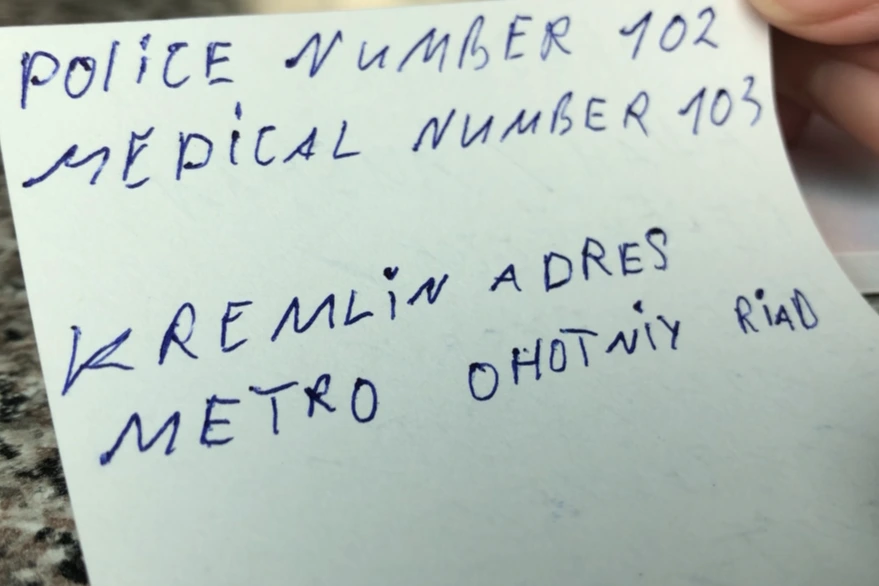 POLiCE NUMBER 102
MEDiCAL NUMBER 103
KREMLiN ADRES
METRO OHOTNiY RiAD